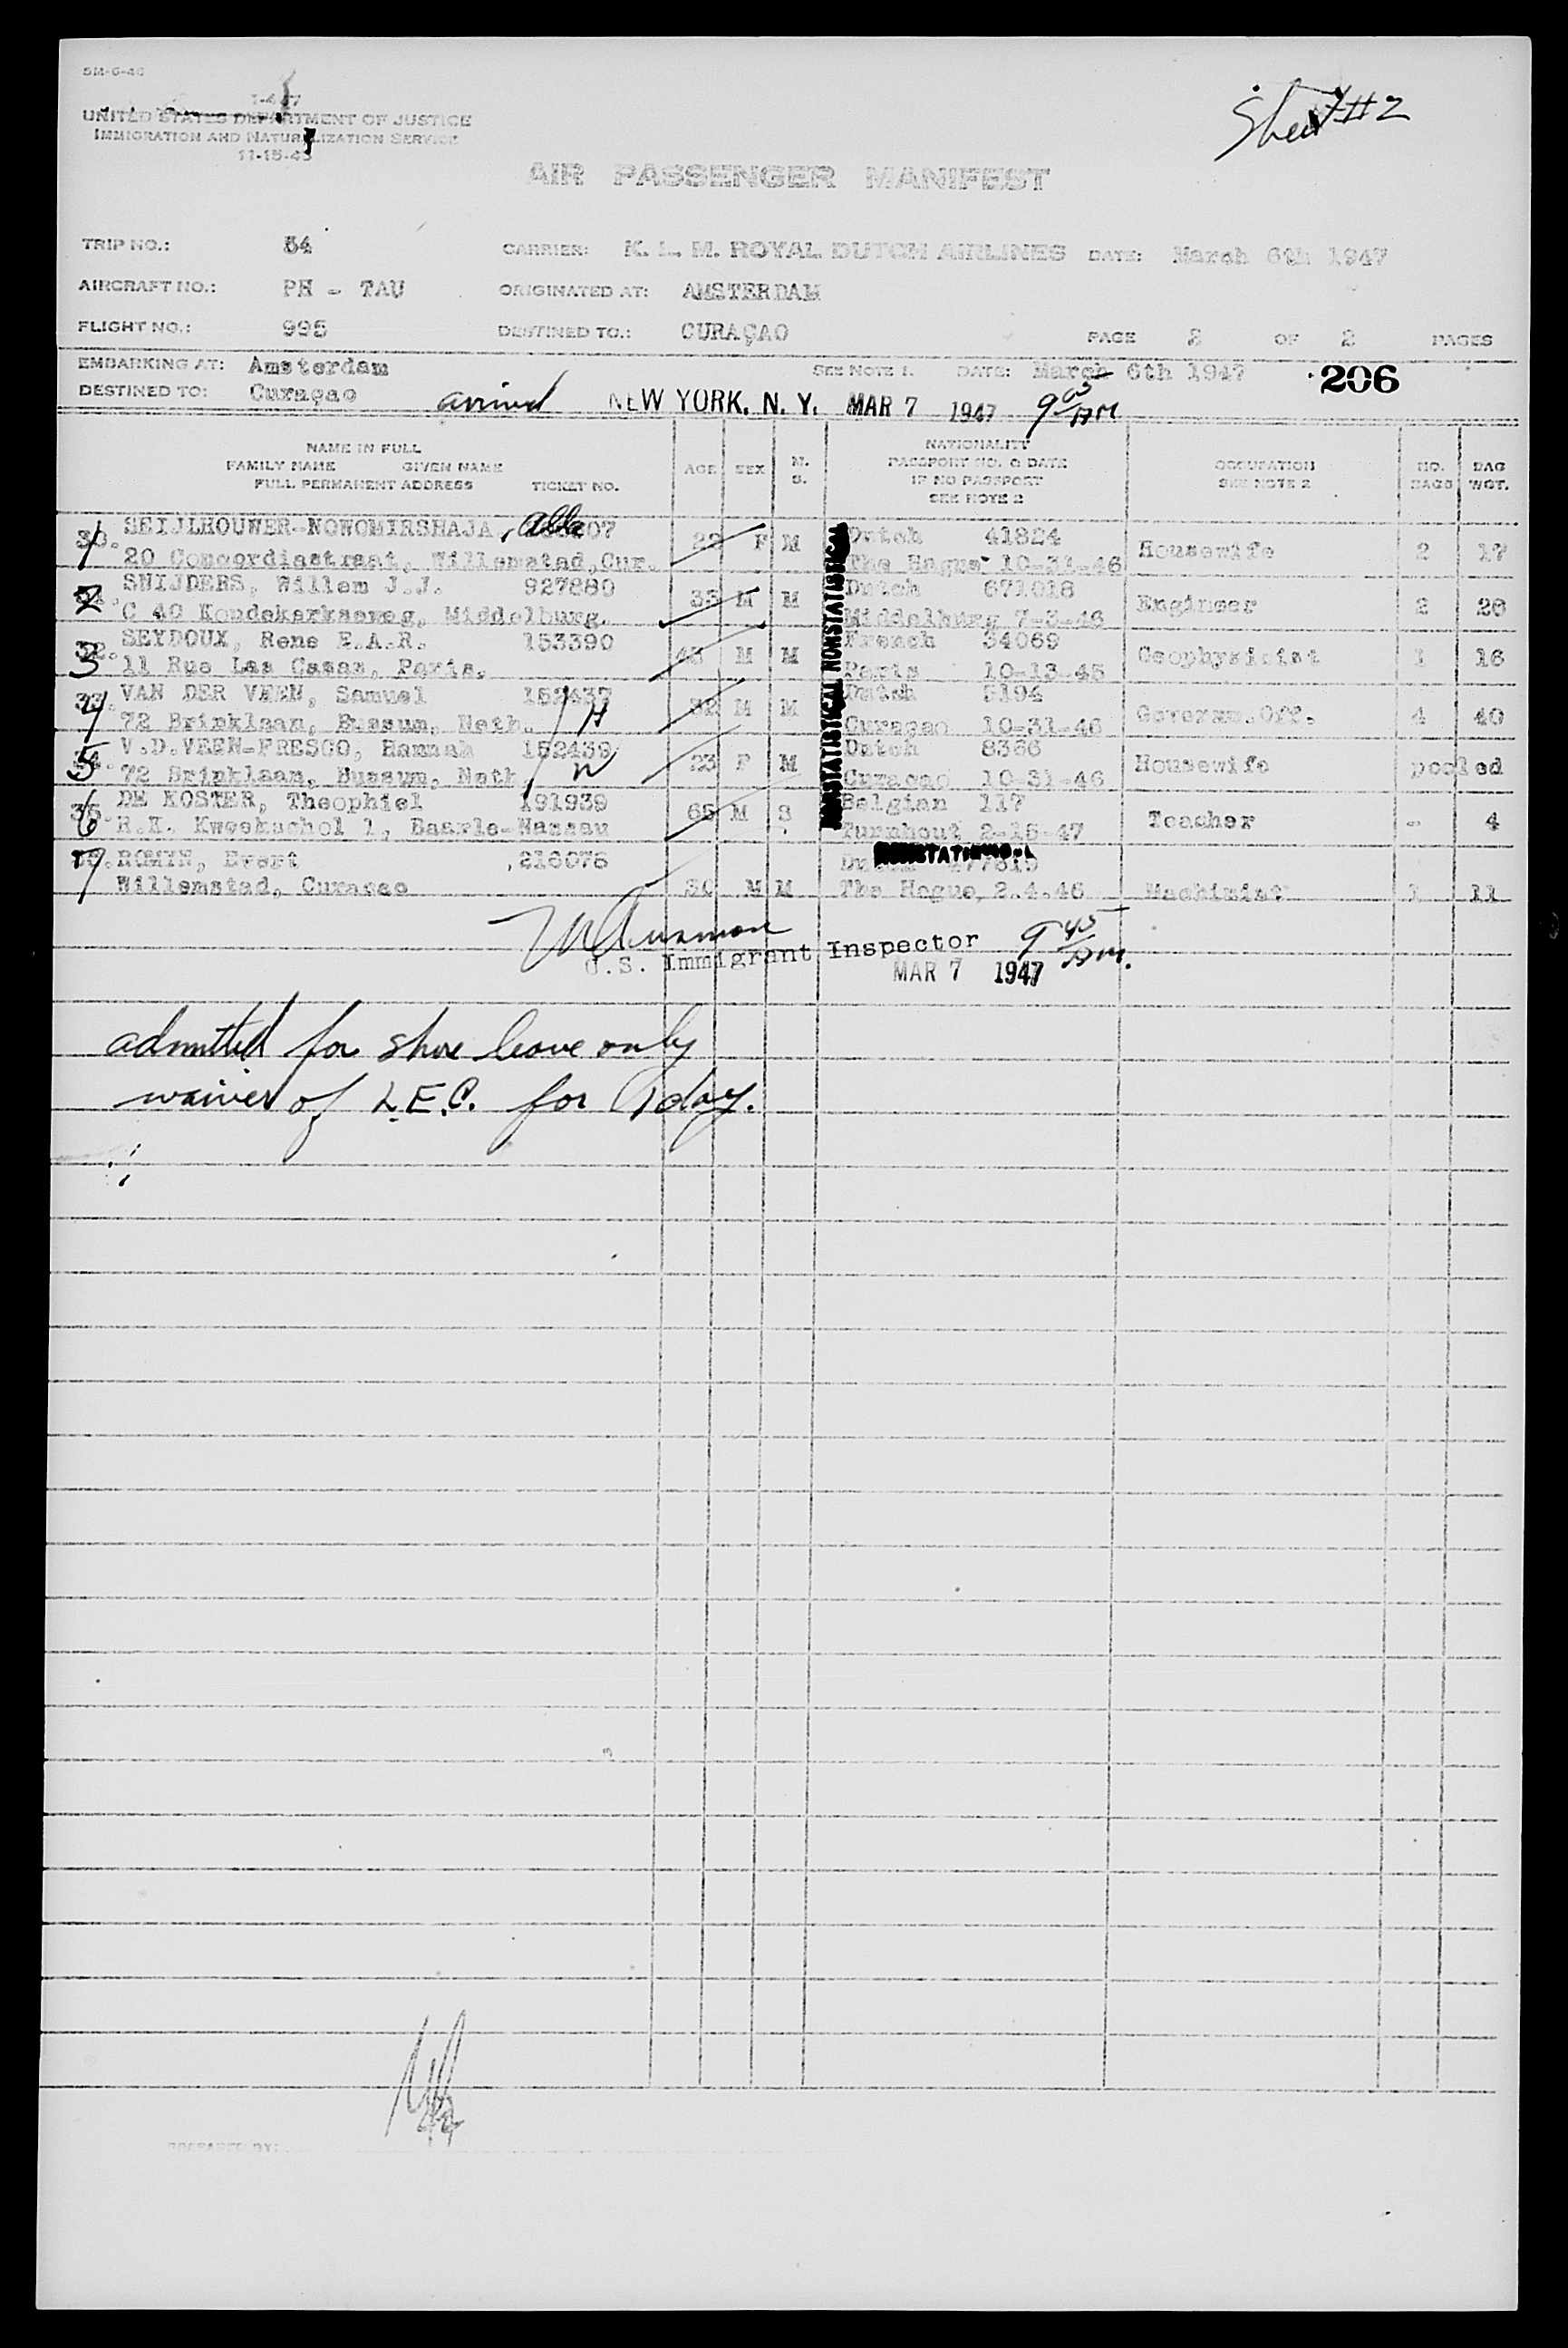 5M-6-46
I-447
UNITED STATES DEPARTMENT OF JUSTICE
IMMIGRATION AND NATURALIZATION SERVICE
11-15-43
Sheet #2
AIR PASSENGER MANIFEST
TRIP NO.: 54 CARRIER: K. L. M. ROYAL DUTCH AIRLINES DATE: March 6th 1947
AIRCRAFT NO.: PH - TAU ORIGINATED AT: AMSTERDAM
FLIGHT NO.: 995 DESTINED TO.: CURAÇAO PAGE 2 OF 2 PAGES
EMBARKING AT: Amsterdam SEE NOTE 1. DATE: March 6th 1947 206
DESTINED TO: Curaçao arrived NEW YORK, N. Y. MAR 7 1947 9 05 AM
NAME IN FULL
FAMILY NAME GIVEN NAME
FULL PERMANENT ADDRESS TICKET NO.
AGE SEX M. S.
NATIONALITY
PASSPORT NO. & DATE
IF NO PASSPORT
SEE NOTE 2
OCCUPATION
SEE NOTE 2
NO. BAGS
BAG WGT.
1 30. SEIJLHOUWER-NOWOMIRSHAJA, Alla 07 F M Dutch 41824
20 Concordiastraat, Willemstad, Cur. The Hague 10-31-46 Housewife 2 17
2 SNIJDERS, Willem J.J. 927880 33 M M Dutch 671018
C 40 Kondekerkseweg, Middelburg. Middelburg 7-3-46 Engineer 2 20
3 32. SEYDOUX, Rene E.A.R. 153390 43 M M French 34069
11 Rue Las Casas, Paris. Paris 10-13-45 Geophysicist 1 16
4 33. VAN DER VEEN, Samuel 152437 H 32 M M Dutch 5194
72 Brinklaan, Bussum, Neth. Curaçao 10-31-46 Governm.Off. 4 40
5 V.D.VEEN-FRESCO, Hannah 152439 W 23 F M Dutch 8366
72 Brinklaan, Bussum, Neth. Curacao 10-31-46 Housewife pooled
6 35. DE KOSTER, Theophiel 191939 65 M S Belgian 117
R.K. Kweekschol 1, Baarle-Nassau Turnhout 2-15-47 Teacher - 4
7 ROMYN, Evert 216076
Willemstad, Curacao 30 M M The Hague, 2.4.46 Machinist 1 11
NONSTATISTICAL NONSTATISTICAL
NONSTATISTICAL
U.S. Immigrant Inspector 9 45 AM.
MAR 7 1947
admitted for shore leave only
waiver of L.E.C. for 1 day.
PREPARED BY: